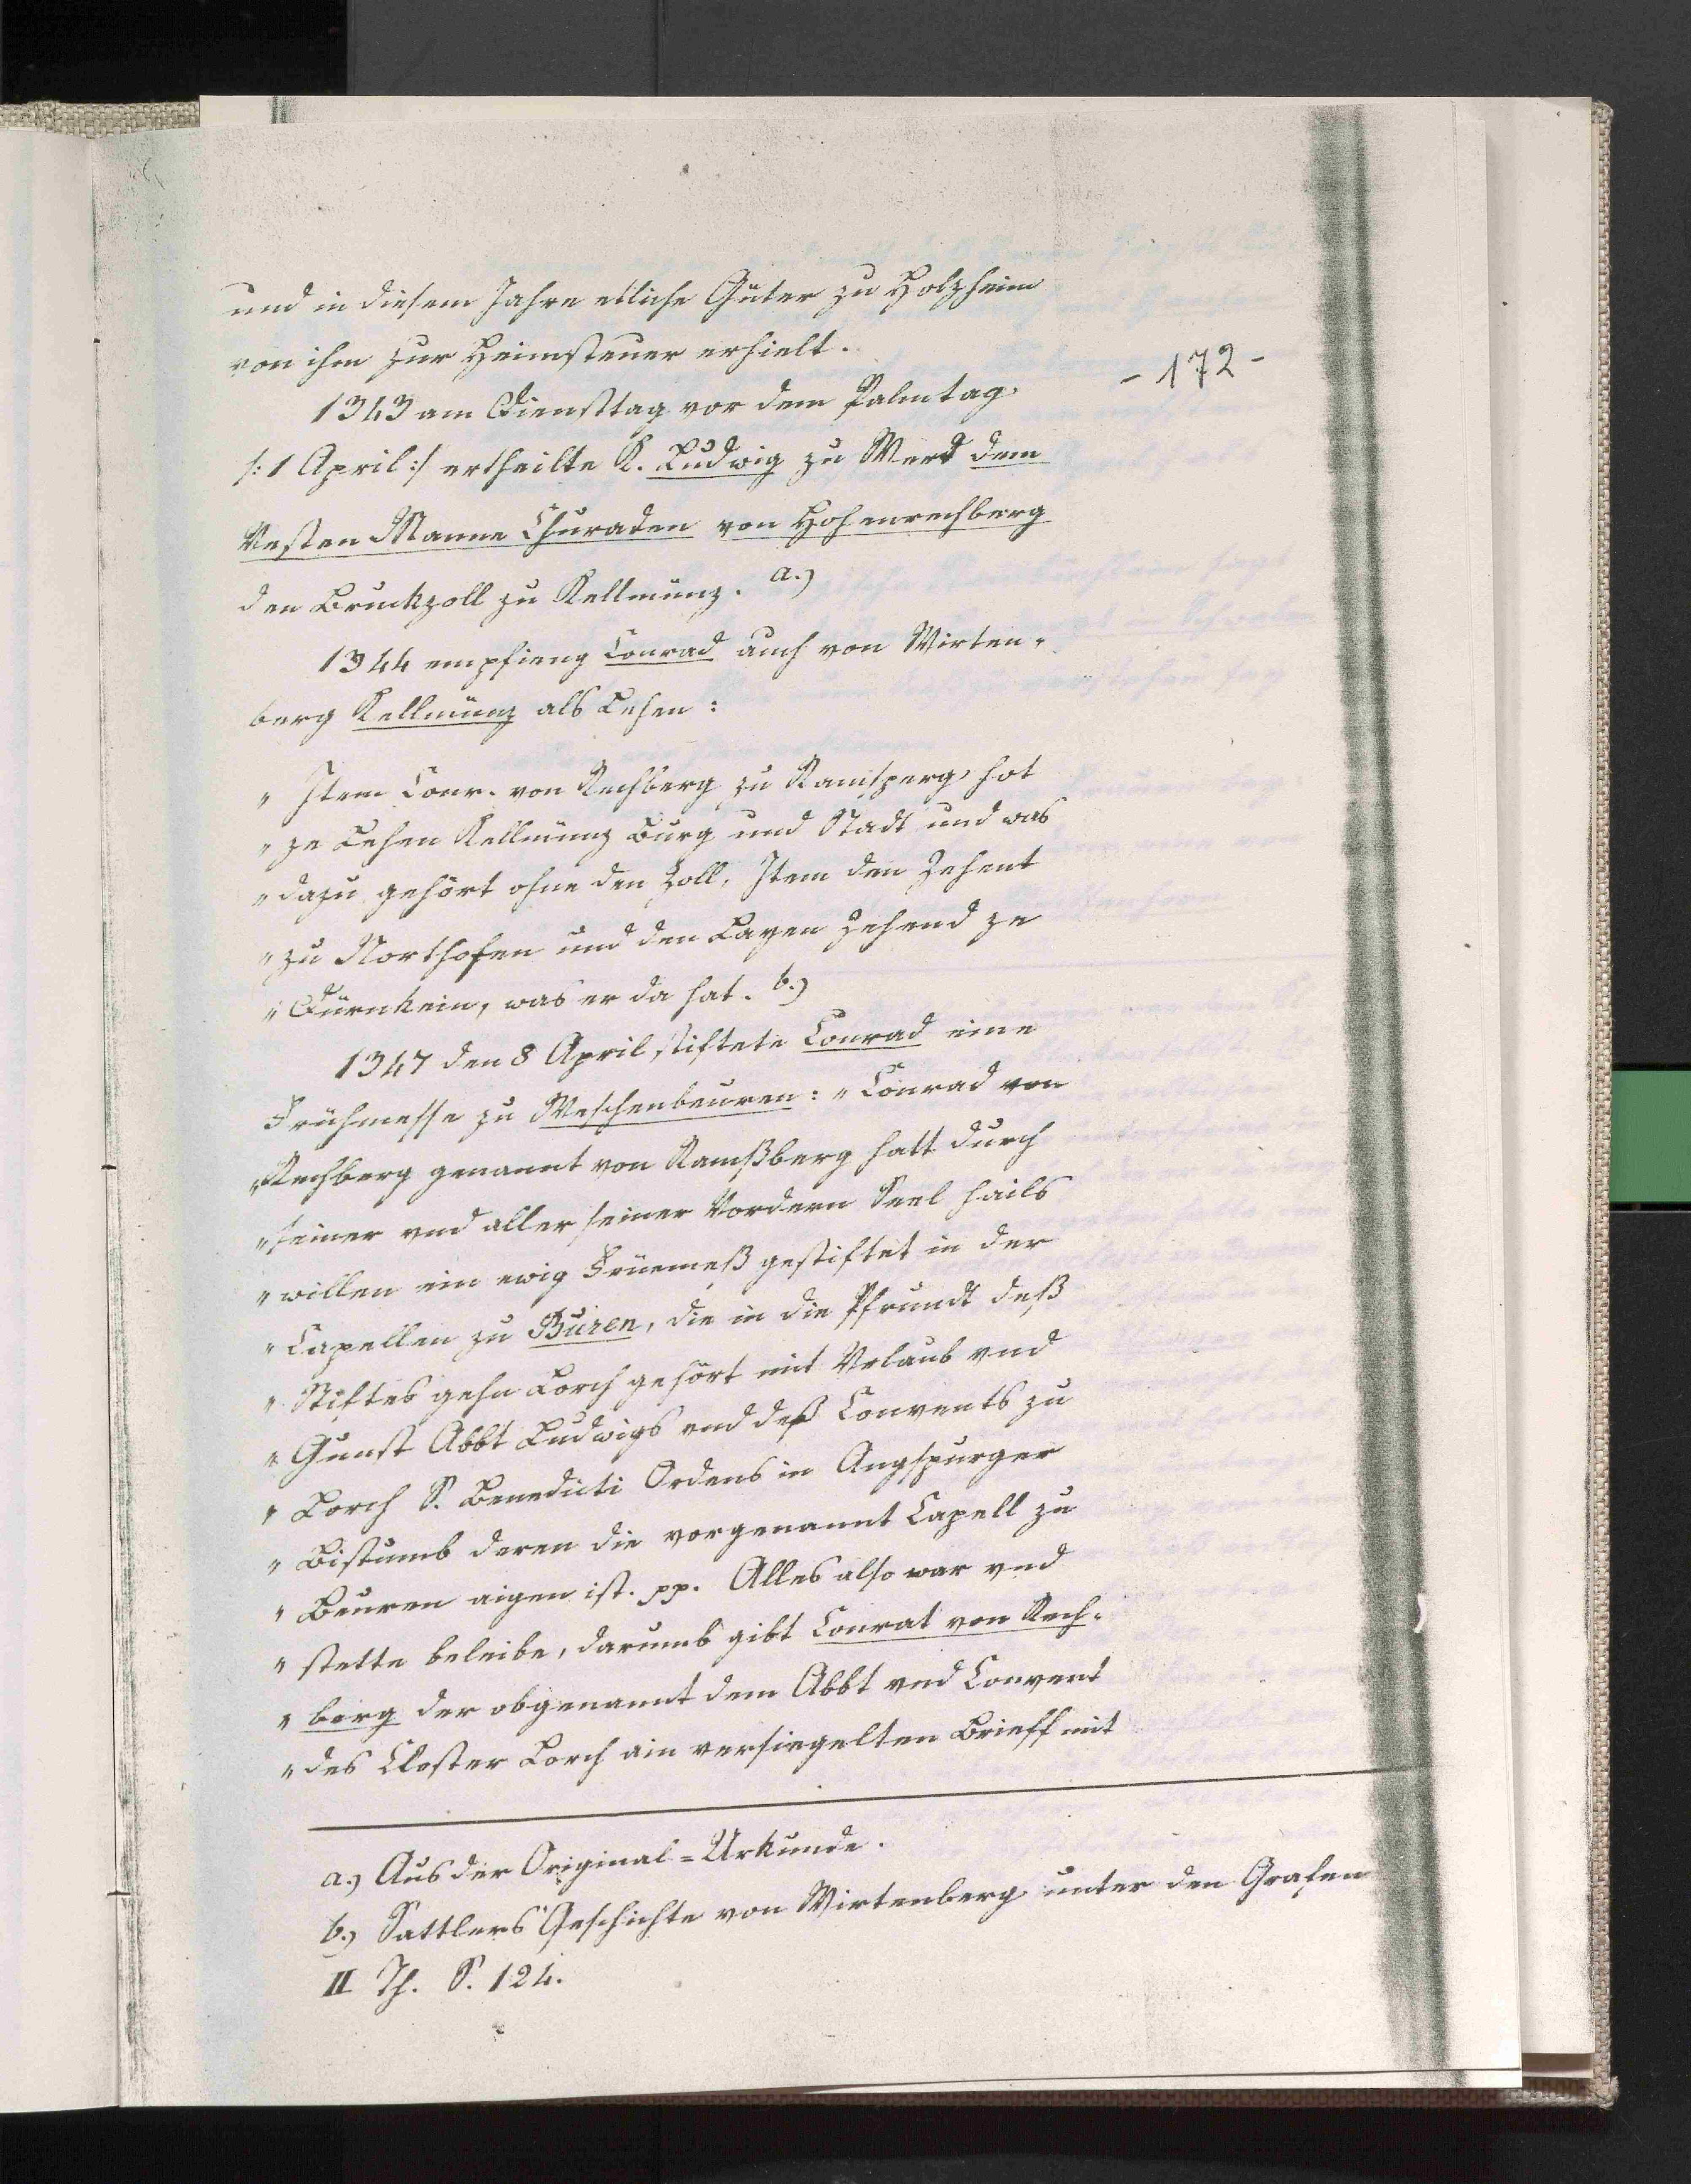 und in diesem Jahre etliche Güter zu Holzheim
von ihm zur Heimsteuer erhielt.
- 172 -
1343 am Diensttag vor dem Palmtag
/: 1 April :/ ertheilte K. Ludwig zu Werd dem
Vesten Manne Churaden von Hohenrechberg
den Bruckzoll zu Kellmünz. a.)
1344 empfieng Conrad auch von Wirten-
berg Kellmünz als Lehen:
" Item Conr. von Rechberg zu Ramsperg, hot
" ze Lehen Kellmünz Burg und Stadt und was
" dazu gehört ohne den Zoll, Item den Zehent
" zu Northofen und den Layen Zehend ze
" Dürnkein, was er da hat. b.)
1347 den 8 April stiftete Conrad eine
Frühmesse zu Weschenbeuren: " Conrad von
" Rechberg genannt von Ramßberg hatt durch
" seiner vnd aller seiner Vordern Seel hails
" willen ein ewig Früemeß gestiftet in der
" Capellen zu Büren, die in die Pfrundt deß
" Stiftes gehn Lorch gehört mit Vrlaub vnd
" Gunst Abbt Ludwigs vnd deß Convents zu
" Lorch S. Benedicti Ordens in Augspurger
" Bistumb deren die vorgenannt Capell zu
" Beuren aigen ist. pp. Alles also war vnd
" stette beleibe, darumb gibt Conrat von Rech-
" berg der obgenannt dem Abbt vnd Convent
" des Closter Lorch ain versiegelten Brieff mit
a.) Aus der Original=Urkunde.
b.) Sattlers Geschichte von Wirtenberg unter den Grafen
II Th. S. 124.